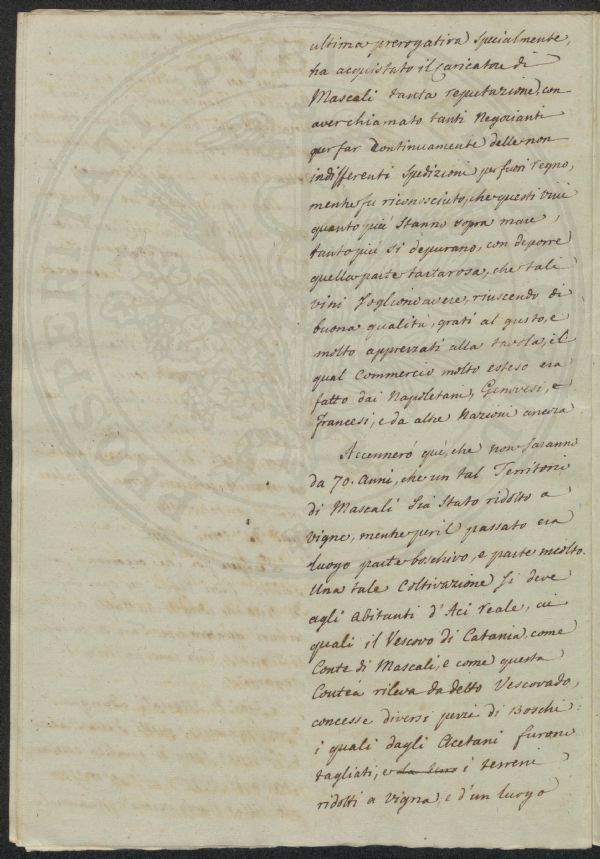 ultima prerogativa specialmente,
ha acquistato il Caricatore di
Mascali tanta reputazione, con
aver chiamato tanti Negozianti
per far continuamente delle non
indifferenti spedizioni per fuori regno,
mentre fu riconosciuto, che questi vini
quanto più stanno sopra mare,
tanto più si depurano, con deporre
quella parte tartarosa, che tali
vini sogliono avere, riuscendo di
buona qualità, grati al gusto, e
molto apprezzati alla tavola, il
qual Commercio molto esteso era
fatto dai Napoletani, Genovesi, e
Francesi, e da altre Nazioni ancora
Accennerò quì, che non saranno
da 70. Anni, che un tal Territorio
di Mascali sia stato ridotto a
vigne, mentre per il passato era
luogo parte boschivo, e parte incolto.
Una tale Coltivazione si deve
agli Abitanti d'Aci reale, ai
quali il Vescovo di Catania, come
Conte di Mascali, e come questa
Contea rileva da detto Vescovado,
concesse diversi pezzi di Boschi:
i quali dagli Acetani furono
tagliati, e i terreni
ridotti a vigna, e d'un luogo